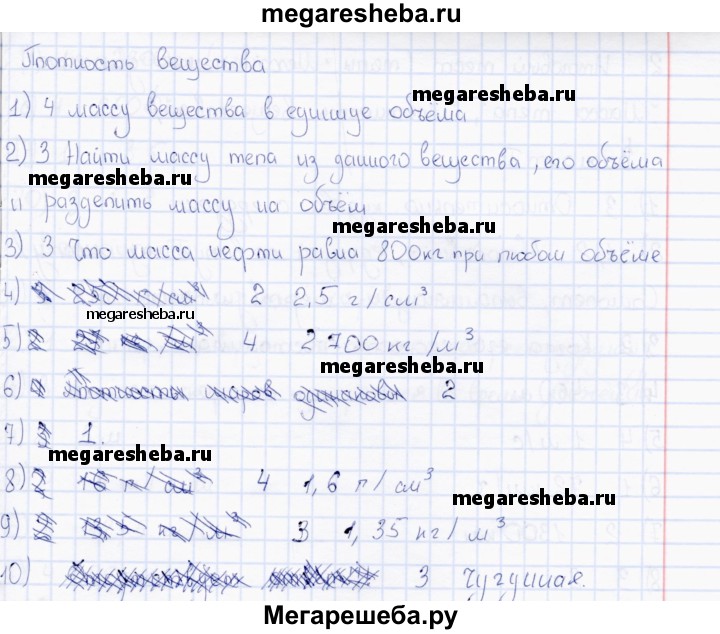 megaresheba.ru
Плотность вещества
megaresheba.ru
1) 4 массу вещества в единице объёма
2) 3 Найти массу тела из данного вещества, его объёма
megaresheba.ru
и разделить массу на объём
megaresheba.ru
3) 3 Что масса нефти равна 800кг при любом объёме
4) 2 2,5 г/см³
megaresheba.ru
5) 4 2700кг/м³
megaresheba.ru
6) 2
7) 1.
megaresheba.ru
8) 4 1,6 г/см³
megaresheba.ru
9) 3 1,35 кг/м³
10) 3 Чугунная.
Мегарешеба.ру